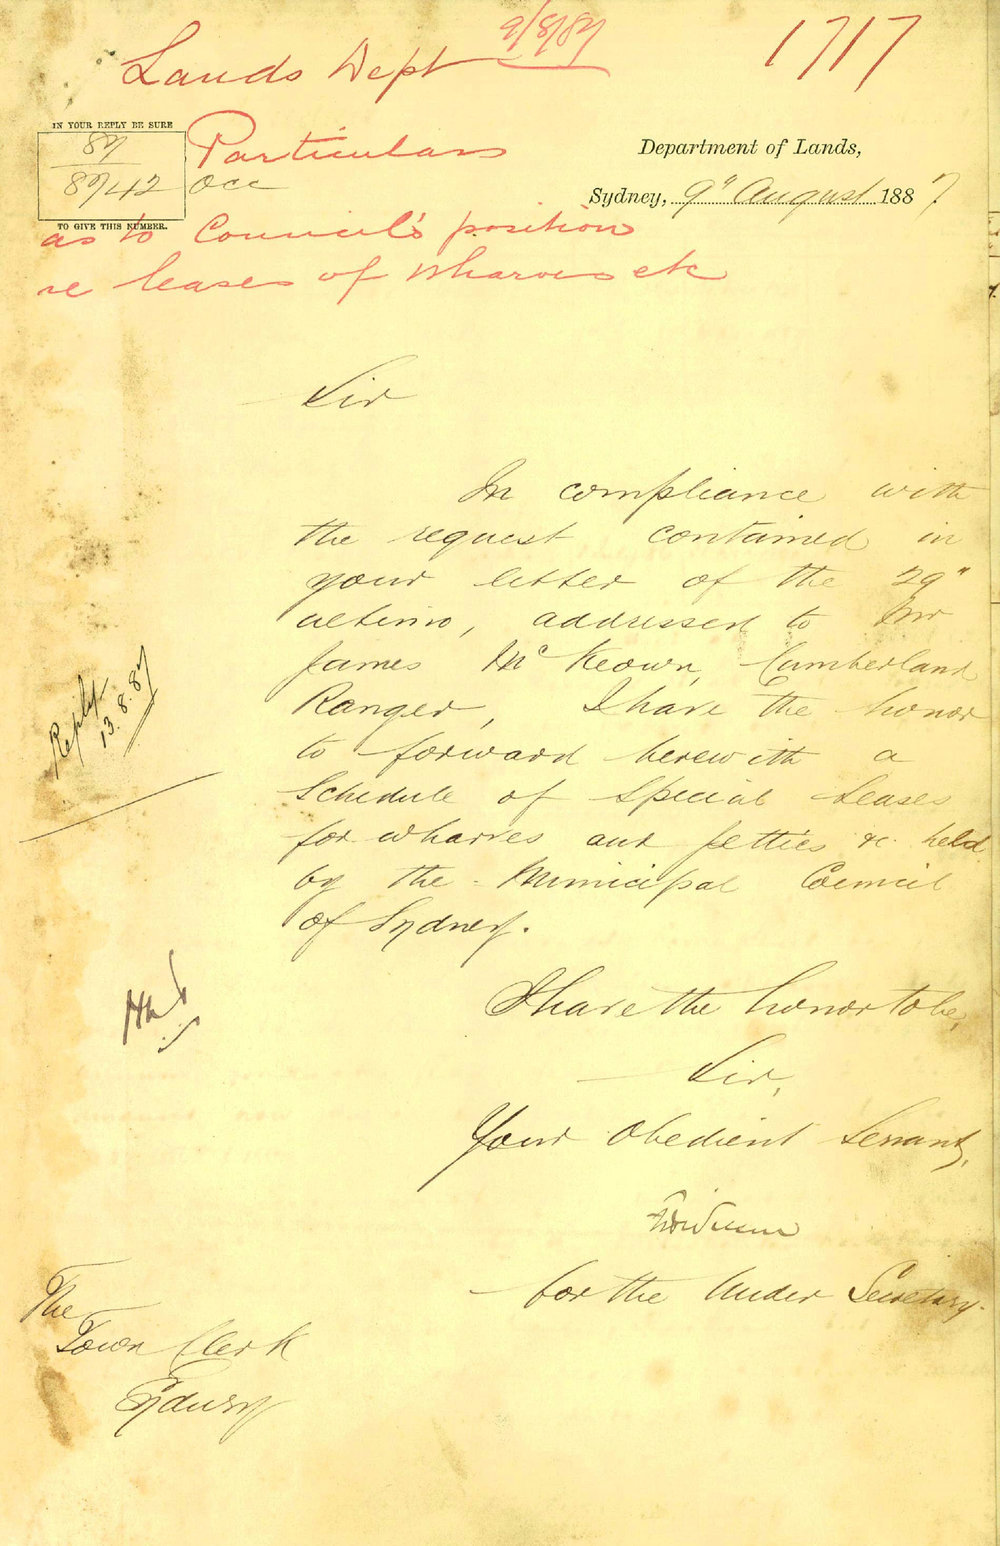 Lands Dept 9/8/87
1717
IN YOUR REPLY BE SURE
87
8742 Occ
TO GIVE THIS NUMBER.
Particulars
as to Council's position
re leases of wharves etc
Department of Lands,
Sydney, 9" August 1887
Sir
In compliance with
the request contained in
your letter of the 29"
ultimo, addressed to Mr
James McKeown, Cumberland
Ranger, I have the honor
to forward herewith a
Schedule of Special Leases
for wharves and jetties &c held
by the Municipal Council
of Sydney.
I have the honor to be,
Sir,
Your Obedient Servant,
for the Under Secretary.
The
Town Clerk
Sydney
Reply
13.8.87